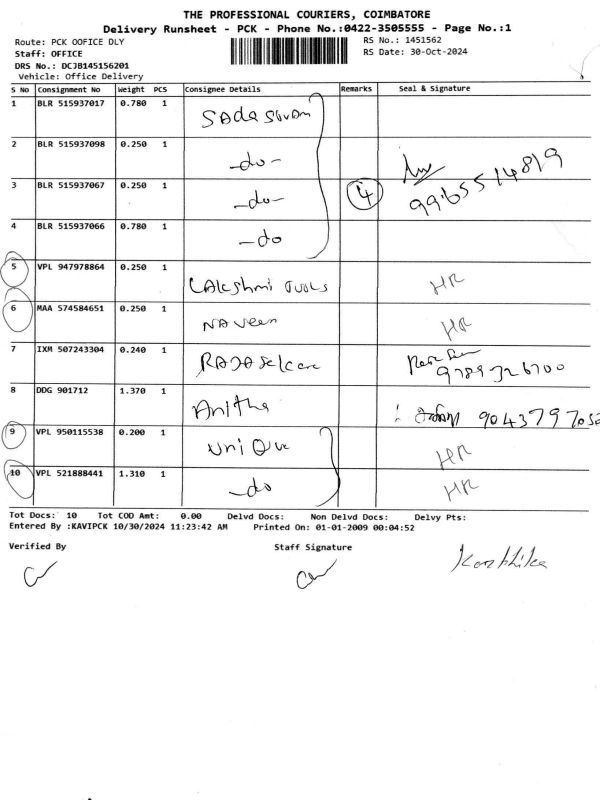 THE PROFESSIONAL COURIERS, COIMBATORE
Delivery Runsheet - PCK - Phone No.:0422-3505555 - Page No.:1
Route: PCK OOFICE DLY
RS No.: 1451562
Staff: OFFICE
RS Date: 30-Oct-2024
DRS No.: DCJB145156201
Vehicle: Office Delivery
S No Consignment No Weight PCS Consignee Details Remarks Seal & Signature
1 BLR 515937017 0.780 1 Sadasivam
2 BLR 515937098 0.250 1 -do-
3 BLR 515937067 0.250 1 -do- 4 9965514819
4 BLR 515937066 0.780 1 -do
5 VPL 947978864 0.250 1 Lakshmi Tools HR
6 MAA 574584651 0.250 1 Naveen HR
7 IXM 507243304 0.240 1 9789326700
8 DDG 901712 1.370 1 Anitha
9 VPL 950115538 0.200 1 UniQue HR
10 VPL 521888441 1.310 1 -do HR
Tot Docs: 10 Tot COD Amt: 0.00 Delvd Docs: Non Delvd Docs: Delvy Pts:
Entered By :KAVIPCK 10/30/2024 11:23:42 AM Printed On: 01-01-2009 00:04:52
Verified By Staff Signature
Karthika